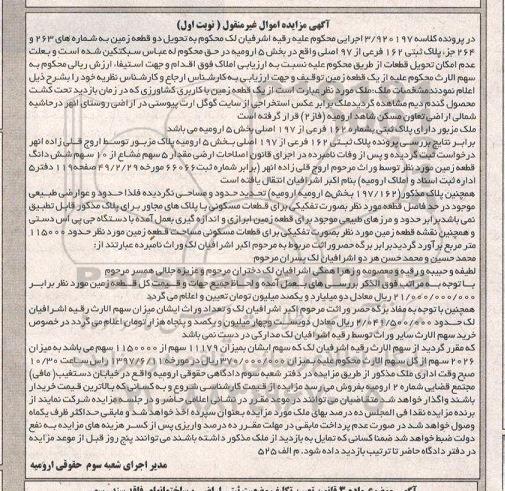 آگهی مزایده اموال غیرمنقول ( نوبت اول)
در پرونده کلاسه ۳/۹۲۰۱۹۷ اجرایی محکوم علیه رقیه اشرفیان لک محکوم به تحویل دو قطعه زمین به شماره های ۲۶۳ و
۲۶۴ جزء پلاک ثبتی ۱۶۲ فرعی از ۹۷ اصلی واقع در بخش ۵ ارومیه در حق محکوم له عباس سبکتکین شده است و بعلت
عدم امکان تحویل قطعات از طریق محکوم علیه نسبت به ارزیابی املاک فوق اقدام و جهت استیفاء ارزش ریالی محکوم به
سهم الارث محکوم علیه از یک قطعه زمین توقیف و جهت ارزیابی به کارشناس ارجاع و کارشناس نظریه خود را بشرح ذیل
اعلام نموده: مشخصات ملک: ملک مورد نظر عبارت است از یک قطعه زمین با کاربری کشاورزی که در زمان بازدید تحت کشت
محصول گندم دیم مشاهده گردید ملک برابر عکس استخراجی از سایت گوگل ارث پیوستی در اراضی روستای انهر در حاشیه
شمالی اراضی تعاون مسکن شاهد ارومیه (فاز۲) قرار گرفته است
ملک مزبور دارای پلاک ثبتی بشماره ۱۶۲ فرعی از ۱۹۷ اصلی بخش ۵ ارومیه می باشد
برابر نتایج بررسی پرونده پلاک ثبتی ۱۶۲ فرعی از ۱۹۷ اصلی بخش ۵ ارومیه پلاک مزبور توسط اروج قلی زاده انهر
درخواست ثبت گردیده و پس از وفات نامبرده در اجرای قانون اصلاحات ارضی مقدار ۵ سهم مشاع از ۱۰ سهم شش دانگ
قطعه زمین مورد نظر توسط وراث مرحوم اروج قلی زاده انهر (برابر شماره ثبت ۶۶۰۶ مورخه ۴۹/۲/۲۹ صفحه ۱۹ دفتر ۵
اداره ثبت اسناد و املاک ارومیه) بنام اکبر اشرافیان انتقال یافته است
همچنین پلاک مذکور (۱۹۷/۱۶۲ بخش ۵ ارومیه) تحدید حدود و مساحی نگردیده فلذا حدود و عوارض طبیعی
موجود در حد فاصل قطعه مورد نظر بصورت تفکیکی برای قطعات مسکونی با پلاک های مجاور برای پلاک مذکور قابل تطبیق
نمی باشد برابر حدود و مرزهای طبیعی موجود برای قطعه زمین ابرازی و اندازه گیری بعمل آمده با دستگاه جی پی اس دستی
و همچنین نقشه قطعه زمین مورد نظر بصورت تفکیکی برای قطعات مسکونی مساحت قطعه زمین مورد نظر حدود ۱۱۵۰۰۰
متر مربع برآورد گردید برابر برگه حصر وراثت مربوط به مرحوم اکبر اشرافیان لک وراث نامبرده عبارتند از:
محمد حسین و محمد حسن هر دو اشرافیان لک پسران مرحوم
لطیفه و حبیبه و رقیه و معصومه و زهرا همگی اشرافیان لک دختران مرحوم و عزیزه جلالی همسر مرحوم
با توجه به مراتب فوق الذکر و بررسی های بعمل آمده و لحاظ جمیع جهات و قیمت کل قطعه زمین مورد نظر برابر
۲۱/۰۰۰/۰۰۰/۰۰۰ ریال معادل دو میلیارد و یکصد میلیون تومان تعیین و اعلام می گردد
همچنین با توجه به مفاد برگه حصر وراثت مرحوم اکبر اشرافیان لک و تعداد وراث ایشان میزان سهم الارث رقیه اشرافیان
لک حدود ۲/۰۴۱/۵۰۰/۰۰۰ ریال معادل دویست و چهار میلیون و یکصد و پنجاه هزار تومان اعلام می گردد در خصوص
خرید سهم الارث سایر وراث توسط رقیه اشرافیان لک مدارکی در دست نمی باشد
که مقرر گردید از سهم الارث رقیه اشرفیان لک که سهم ایشان بمیزان ۱۱۱۷۹ سهم از ۱۱۵۰۰۰۰ سهم می باشد به میزان
۲۰۲۶ سهم از کل سهم الارث محکوم علیه به میزان ۳۷۰/۰۰۰/۰۰۰ ریال در مورخه ۱۳۹۷/۶/۱۱ راس ساعت ۱۰/۳۰
صبح وقت اداری ملک مذکور از طریق مزایده در دفتر شعبه سوم دادگاهی حقوقی ارومیه واقع در خیابان دستغیب (مافی)
مجتمع قضایی شماره ۲ ارومیه بفروش می رسد مزایده از قیمت کارشناسی شروع و به کسانی که بالاترین قیمت خریدار
باشند واگذار خواهد شد متقاضیان می توانند در موعد مقرر در نشانی اعلامی حاضر و در جلسه مزایده شرکت نمایند از
برنده مزایده نقدا فی المجلس ده درصد بهای ملک مورد مزایده بعنوان سپرده اخذ خواهد شد و مابقی حداکثر ظرف یکماه
وصول خواهد شد در صورت عدم پرداخت مابقی در مهلت مقرر ده درصد واریزی پس از کسر هزینه های مزایده به نفع
دولت ضبط خواهد شد ضمنا کسانی که تمایل به بازدید از ملک مذکور داشته باشند می توانند پنج روز قبل از موعد مزایده
در دفتر دادگاه حاضر تا ترتیب بازدید داده شود. م الف ۵۲۵
مدیر اجرای شعبه سوم حقوقی ارومیه